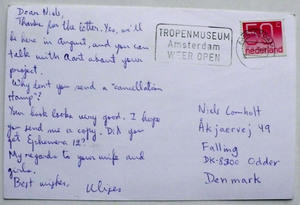 Dear Niels,
Thanks for the letter. Yes, we'll
be here in August, and you can
talk with Aart about your
project.
Why don't you send a "cancellation
stamp"?
Your book looks very good. I hope
you send me a copy. Did you
get Ephemera 12?
My regards to your wife and
girls.
Best wishes,
Ulises
TROPENMUSEUM
Amsterdam
WEER OPEN
50c
nederland
Niels Lomholt
Åkjaervej 49
Falling
DK-8300 Odder
Denmark